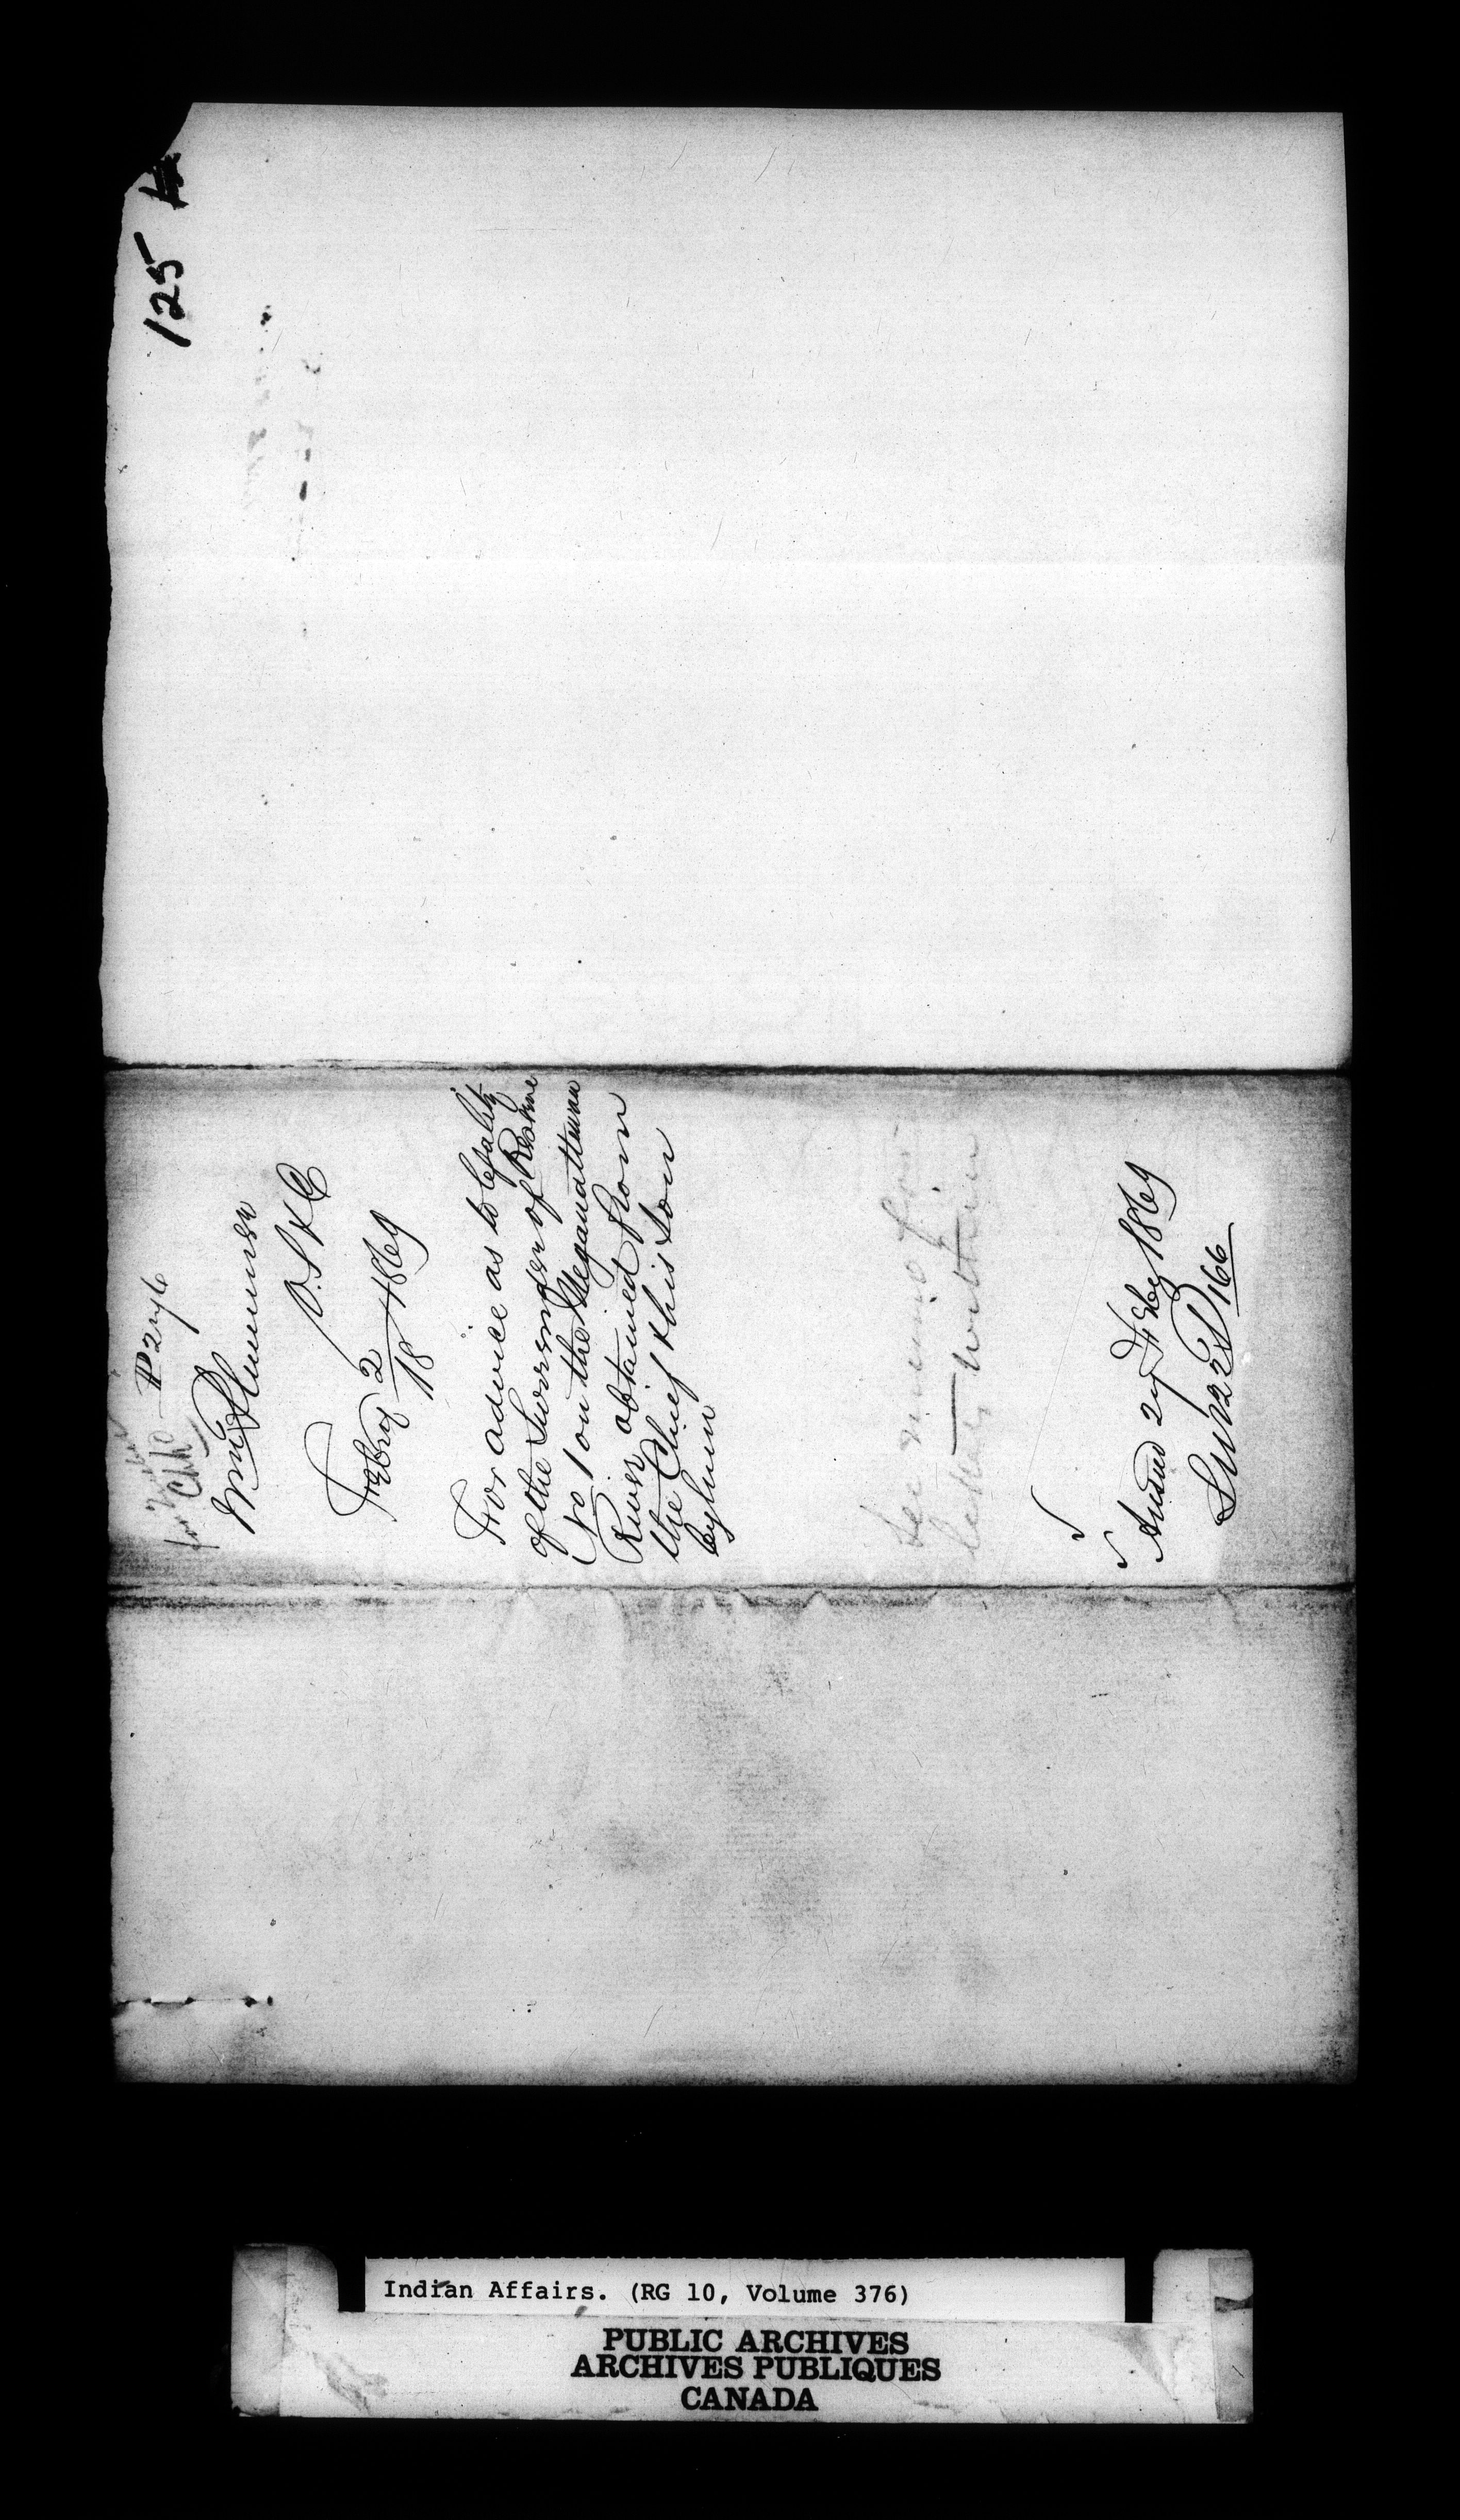 125
P 276
Wm Plummer
V.S & C
Febry 2/18 1869
For advice as to legality
of the Surrender of Reserve
No 1 on the Maganattawan
River obtained from
the Chief & his Son
by him
See memo
letter within
Ansd 27 Feby 1869
166
Indian Affairs. (RG 10, Volume 376)
PUBLIC ARCHIVES
ARCHIVES PUBLIQUES
CANADA